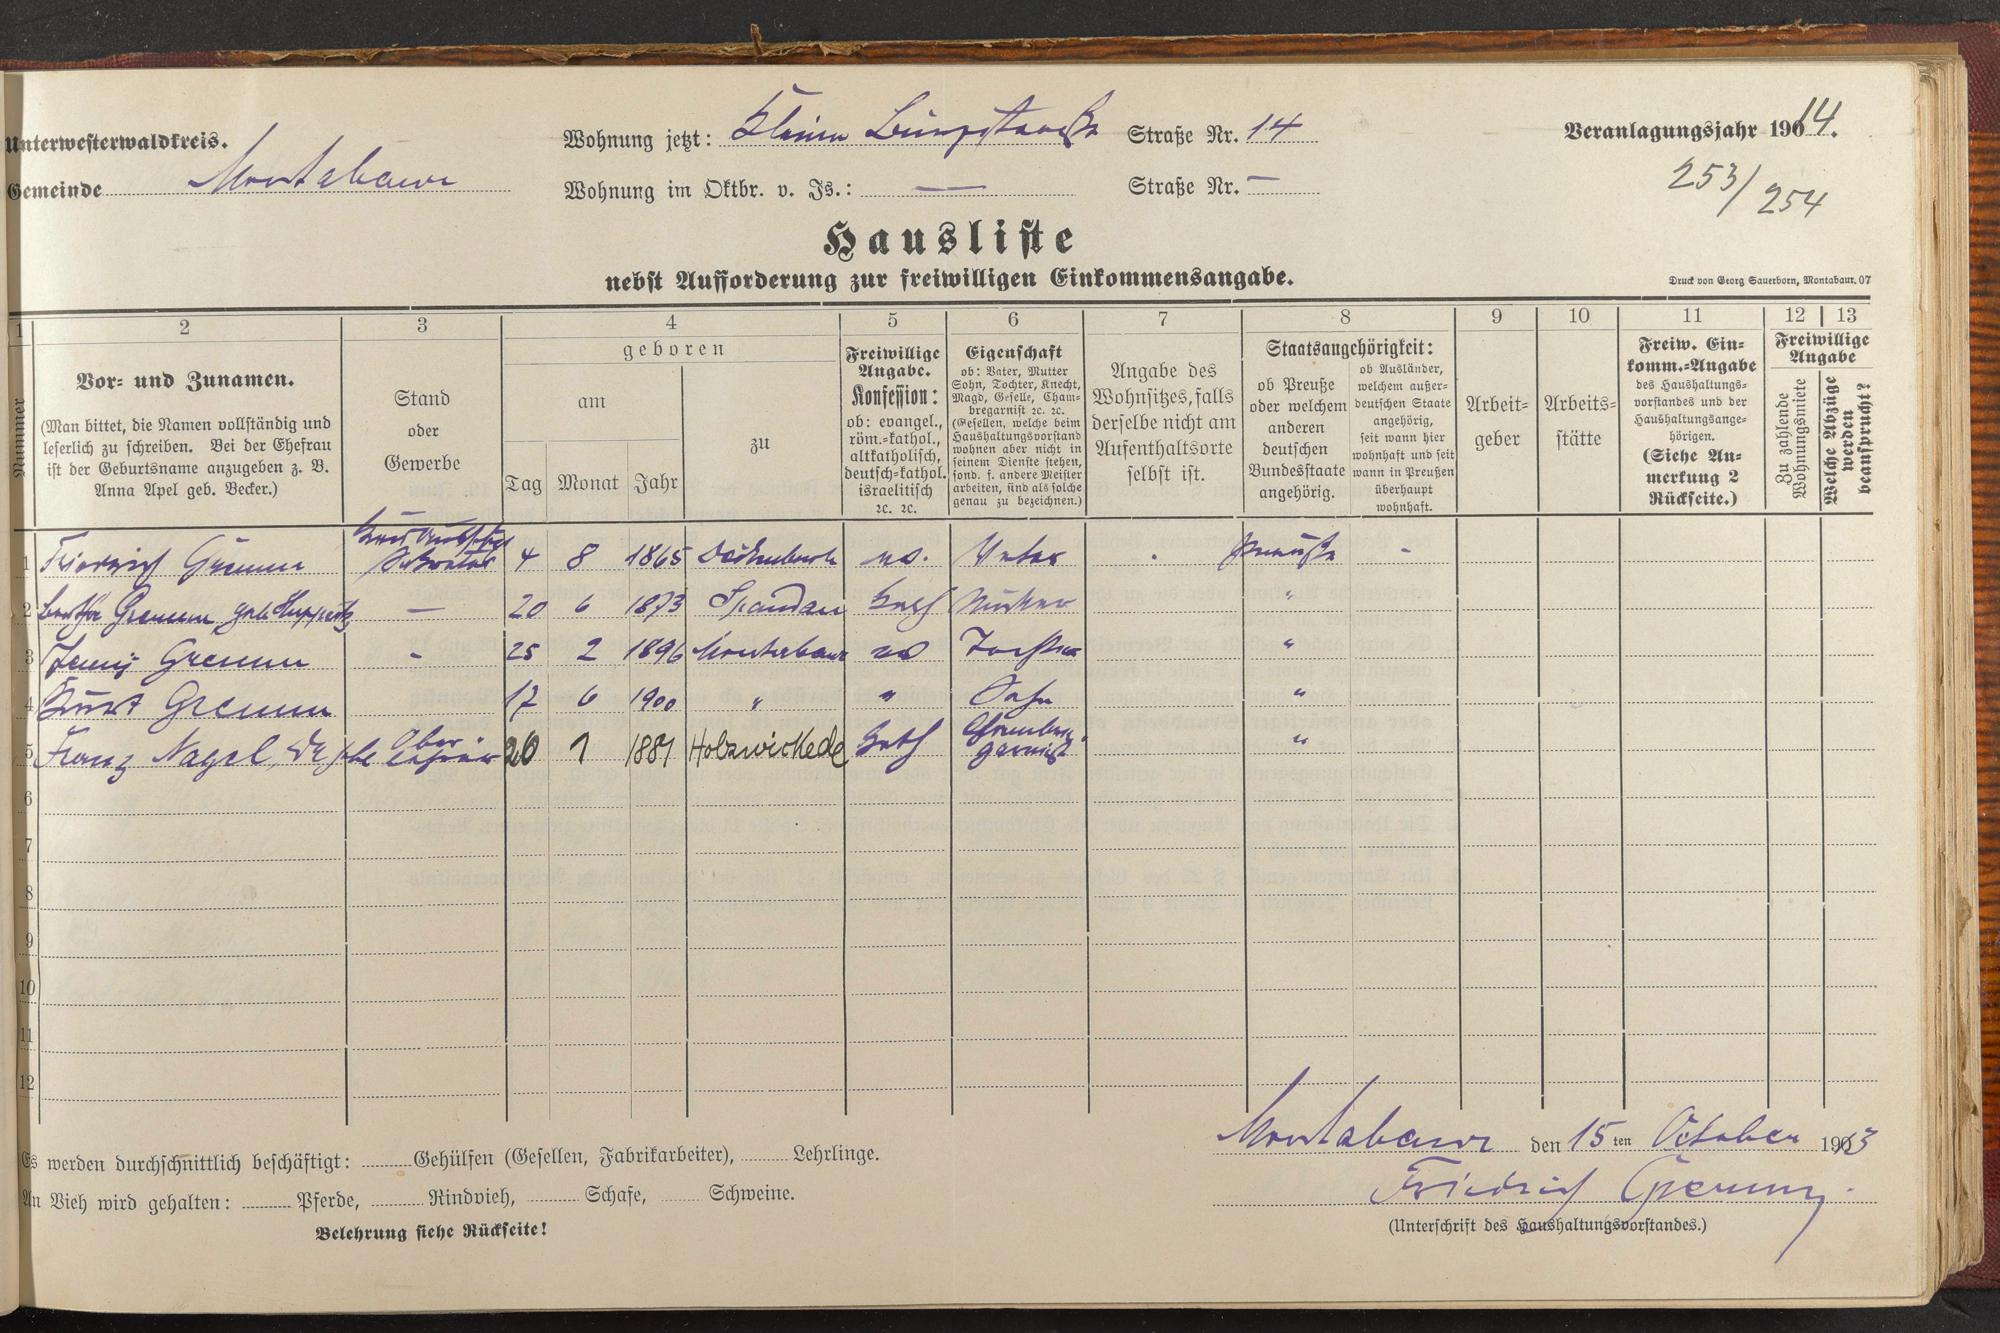 Unterwesterwaldkreis.
Gemeinde Montabaur
Wohnung jetzt: Kleine Burgstraße Straße Nr. 14
Wohnung im Oktbr. v. Js.: — Straße Nr. —
Veranlagungsjahr 190 14.
253/254
Hausliste
nebst Aufforderung zur freiwilligen Einkommensangabe.
Druck von Georg Sauerborn, Montabaur. 07
1 2 3 4 5 6 7 8 9 10 11 12 13
Nummer
Vor- und Zunamen.
(Man bittet, die Namen vollständig und
leserlich zu schreiben. Bei der Ehefrau
ist der Geburtsname anzugeben z. B.
Anna Apel geb. Becker.)
Stand
oder
Gewerbe
geboren
am
Tag Monat Jahr
zu
Freiwillige
Angabe.
Konfession:
ob: evangel.,
röm.-kathol.,
altkatholisch,
deutsch-kathol.
israelitisch
ꝛc. ꝛc.
Eigenschaft
ob: Vater, Mutter
Sohn, Tochter, Knecht,
Magd, Geselle, Cham-
bregarnist ꝛc. ꝛc.
(Gesellen, welche beim
Haushaltungsvorstand
wohnen aber nicht in
seinem Dienste stehen,
sond. f. andere Meister
arbeiten, sind als solche
genau zu bezeichnen.)
Angabe des
Wohnsitzes, falls
derselbe nicht am
Aufenthaltsorte
selbst ist.
Staatsangehörigkeit:
ob Preuße
oder welchem
anderen
deutschen
Bundesstaate
angehörig.
ob Ausländer,
welchem außer-
deutschen Staate
angehörig,
seit wann hier
wohnhaft und seit
wann in Preußen
überhaupt
wohnhaft.
Arbeit-
geber
Arbeits-
stätte
Freiw. Ein-
komm.-Angabe
des Haushaltungs-
vorstandes und der
Haushaltungsange-
hörigen.
(Siehe An-
merkung 2
Rückseite.)
Freiwillige
Angabe
Zu zahlende
Wohnungsmiete
Welche Abzüge
werden
beansprucht?
1 Friedrich Sekretär 4 8 1865 ev. Vater - Preuße -
2 Bertha geb. — 20 6 1873 Spandau kath Mutter "
3 Jenny - 25 2 1896 Montabaur ev Tochter "
4 Kurt 17 6 1900 " " Sohn "
5 Franz Nagel, Ober- 26 1 1881 Holzwickede kath Chambre- "
garnist
6
7
8
9
10
11
12
Montabaur den 15 ten October 190 13
Friedrich
(Unterschrift des Haushaltungsvorstandes.)
Es werden durchschnittlich beschäftigt: Gehülfen (Gesellen, Fabrikarbeiter), Lehrlinge.
An Vieh wird gehalten: Pferde, Rindvieh, Schafe, Schweine.
Belehrung siehe Rückseite!